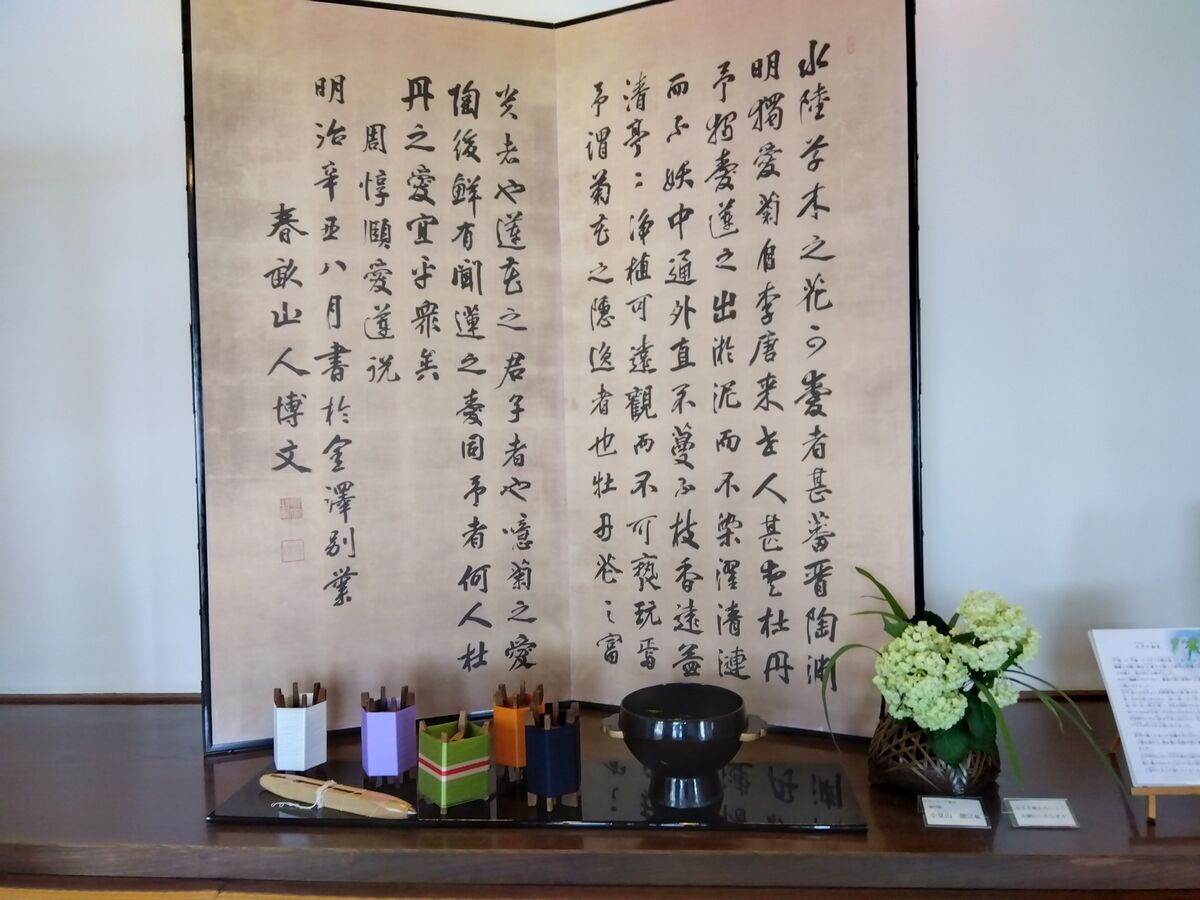 水陸草木之花可愛者甚蕃晋陶渊
明獨愛菊自李唐来世人甚愛牡丹
予独愛蓮之出淤泥而不染濯清漣
而不妖中通外直不蔓不枝香遠益
清亭〻浄植可遠觀而不可褻玩焉
予謂菊花之隠逸者也牡丹花之富
貴者也蓮花之君子者也噫菊之愛
陶後鮮有聞蓮之愛同予者何人牡
丹之愛宜乎衆矣
周惇頤愛蓮説
明治辛丑八月書於金澤別業
春畝山人博文